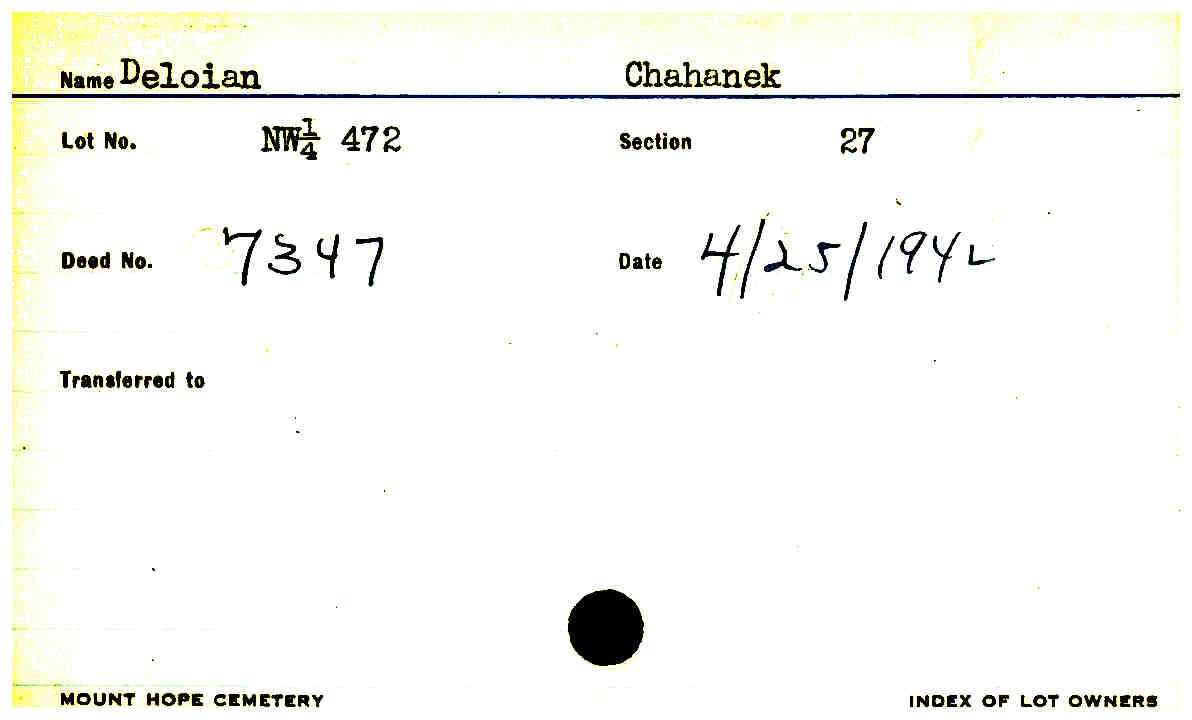 Name Deloian Chahanek
Lot No. NW¼ 472 Section 27
Deed No. 7347 Date 4/25/1942
Transferred to
MOUNT HOPE CEMETERY INDEX OF LOT OWNERS